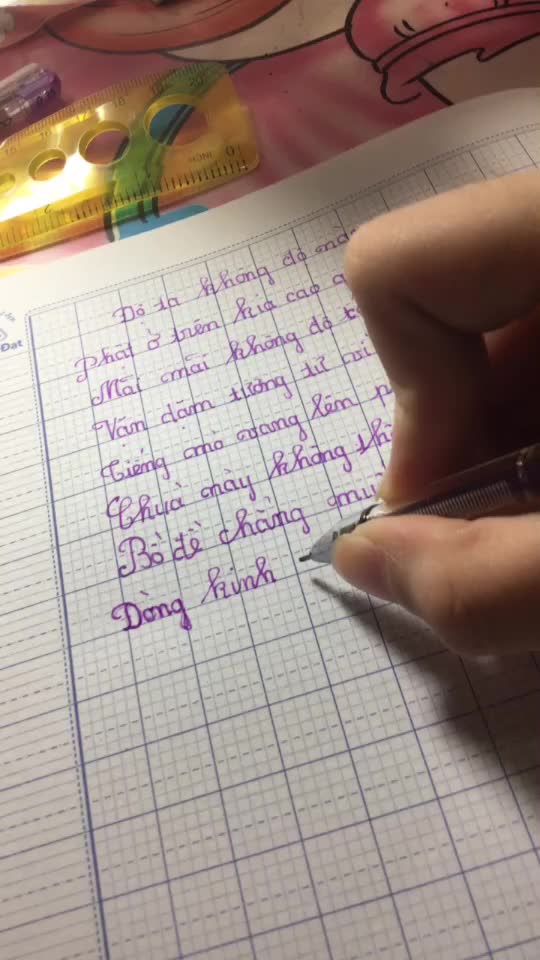 Đạt
Độ ta không độ
Phật ở trên kia cao
Mãi mãi không độ
Vạn dặm tương tư vì
Tiếng mõ vang lên
Chùa này không
Bồ đề chẳng
Dòng kinh